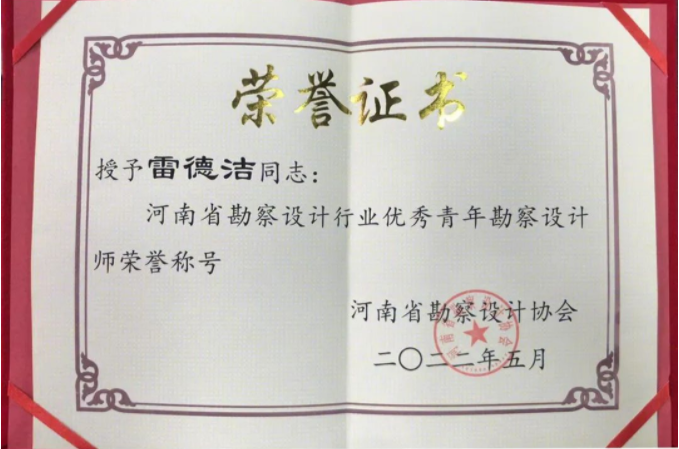 荣誉证书
授予雷德洁同志：
河南省勘察设计行业优秀青年勘察设计
师荣誉称号
河南省勘察设计协会
二〇二二年五月